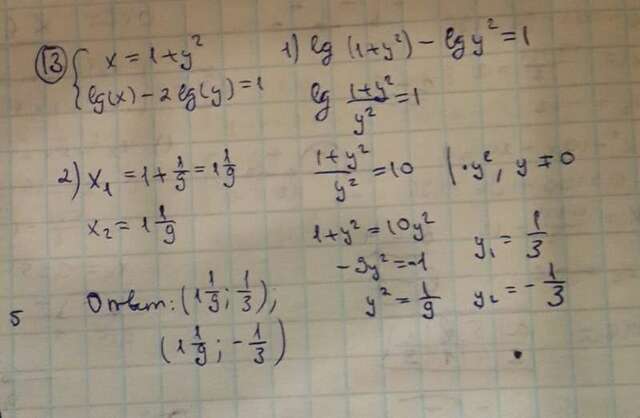 13 { x = 1 + y²
lg(x) - 2 lg(y) = 1
1) lg (1+y²) - lg y² = 1
lg (1+y²)/y² = 1
(1+y²)/y² = 10 | · y², y ≠ 0
1 + y² = 10y²
-9y² = -1
y² = 1/9
y₁ = 1/3
y₂ = - 1/3
2) x₁ = 1 + 1/9 = 1 1/9
x₂ = 1 1/9
Ответ: (1 1/9 ; 1/3);
(1 1/9 ; - 1/3)
5